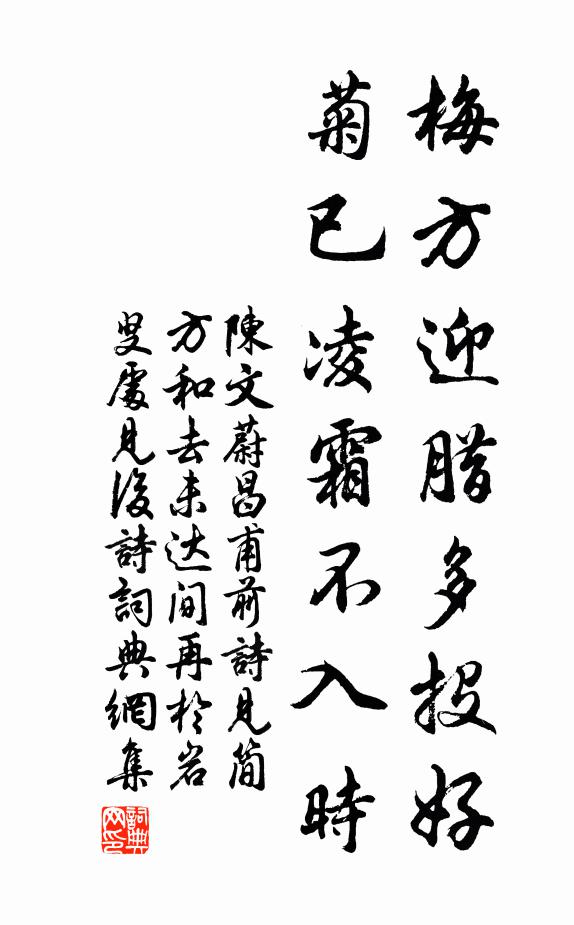 梅方迎腊多投好
菊已凌霜不入時
陳文蔚昌甫前詩見簡
方和去未达间再於岩
叟處見後詩詞典網集
詞典
网印